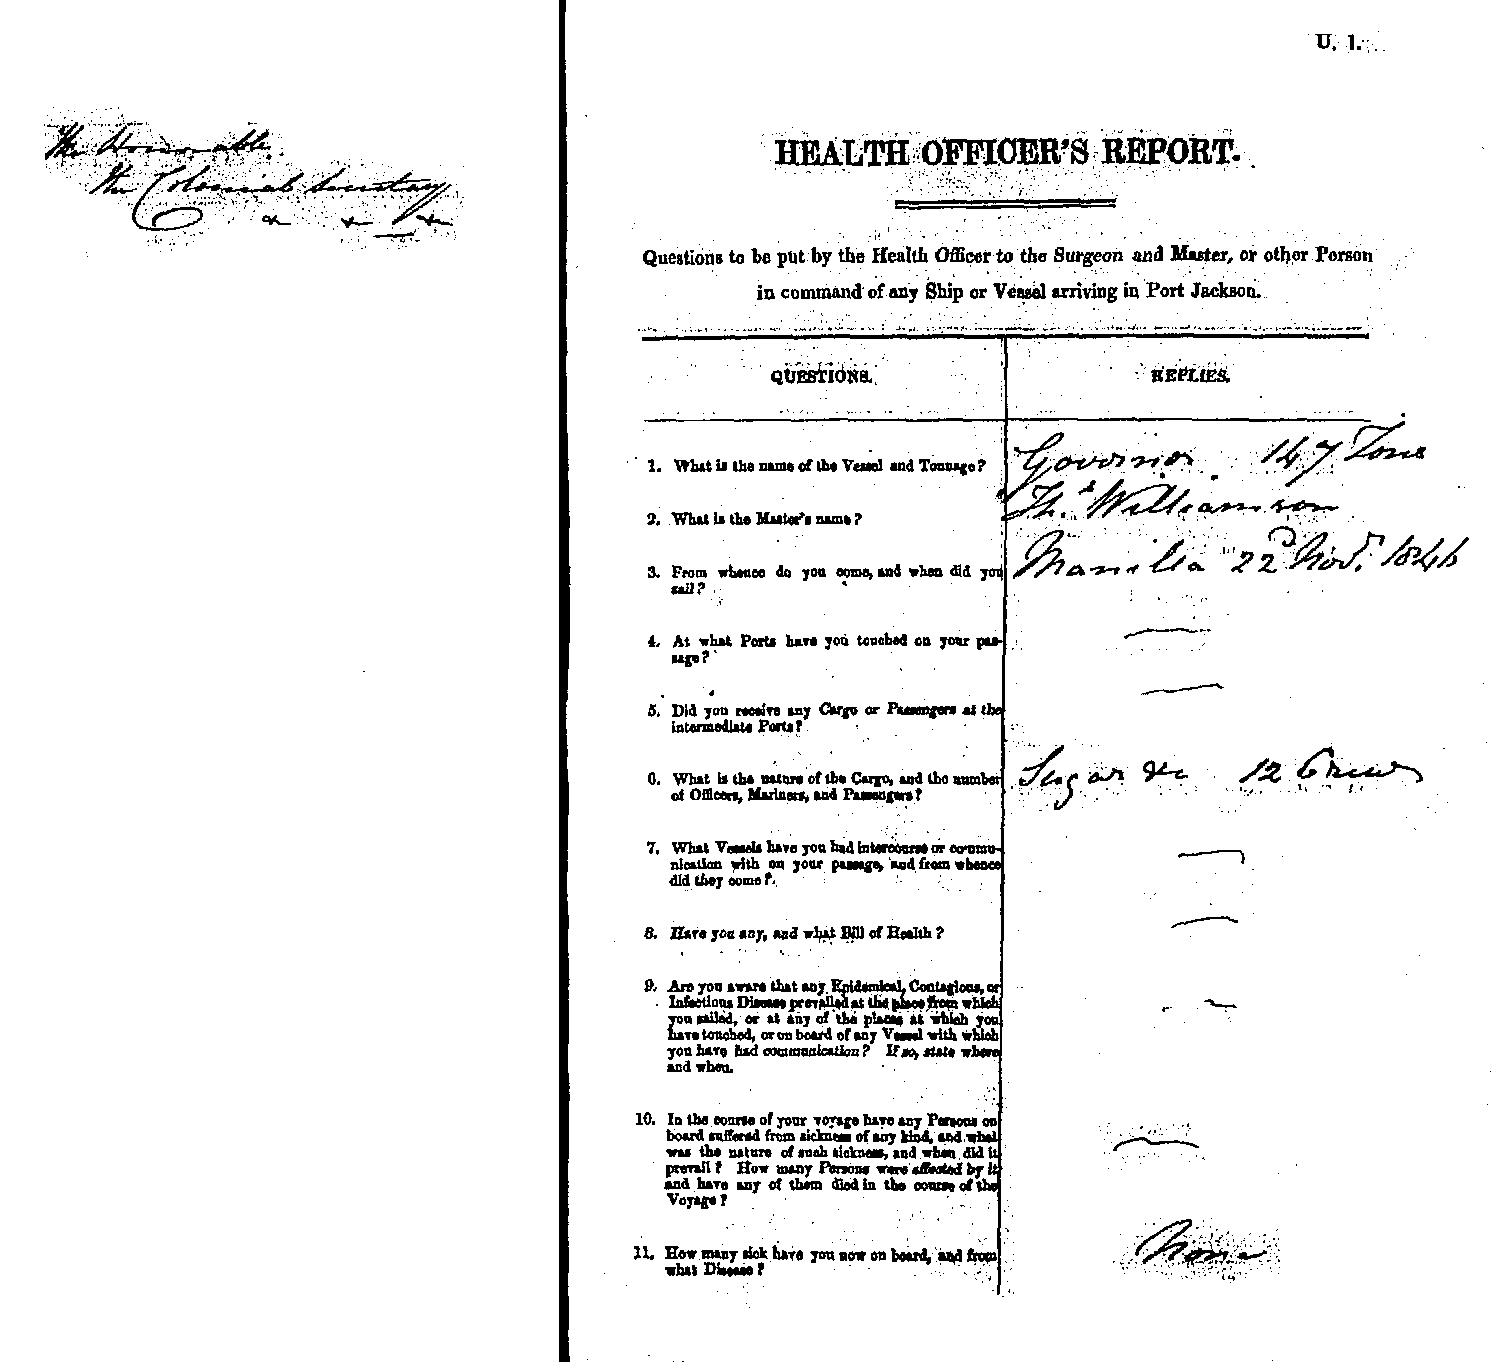 The Honorable
The Colonial Secretary
&c &c &c
U. 1.
HEALTH OFFICER'S REPORT.
Questions to be put by the Health Officer to the Surgeon and Master, or other Person
in command of any Ship or Vessel arriving in Port Jackson.
QUESTIONS. REPLIES.
1. What is the name of the Vessel and Tonnage? Governor 147 Tons
2. What is the Master's name? Thos. Williamson
3. From whence do you come, and when did you Manilla 22d Novr. 1846
sail?
4. At what Ports have you touched on your pas-
sage?
5. Did you receive any Cargo or Passengers at the
intermediate Ports?
6. What is the nature of the Cargo, and the number Sugar &c 12 Crew
of Officers, Mariners, and Passengers?
7. What Vessels have you had intercourse or commu-
nication with on your passage, and from whence
did they come?
8. Have you any, and what Bill of Health?
9. Are you aware that any Epidemical, Contagious, or
Infectious Disease prevailed at the place from which
you sailed, or at any of the places at which you
have touched, or on board of any Vessel with which
you have had communication? If so, state where
and when.
10. In the course of your voyage have any Persons on
board suffered from sickness of any kind, and what
was the nature of such sickness, and when did it
prevail? How many Persons were affected by it
and have any of them died in the course of the
Voyage?
11. How many sick have you now on board, and from None
what Disease?